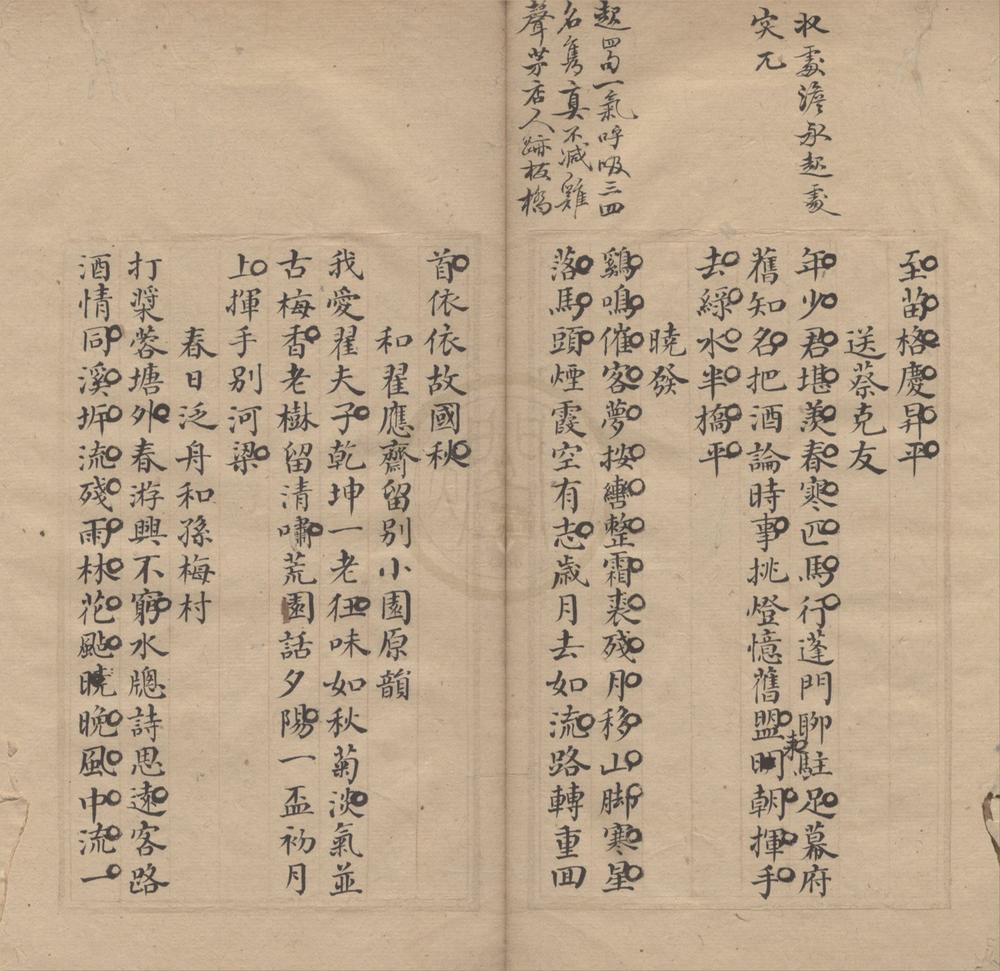 收處澹永起處
突兀
起四句一氣呼吸三四
名雋真不減雞
聲茅店人跡板橋
至苗格慶昇平
送蔡克友
年少君堪羨春寒匹馬行蓬門聊駐足幕府
舊知名把酒論時事挑燈憶舊盟明朝揮手
来
去綠水半橋平
曉發
鷄鳴催客夢按轡整霜裘殘月移山脚寒星
落馬頭煙霞空有志歲月去如流路轉重回
首依依故國秋
和翟應齋留別小園原韻
我愛翟夫子乾坤一老狂味如秋菊淡氣並
古梅香老樹留清嘯荒園話夕陽一盃初月
上揮手別河梁
春日泛舟和孫梅村
打槳蓉塘外春游興不窮水牕詩思遠客路
酒情同溪坼流殘雨林花颭曉晚風中流一